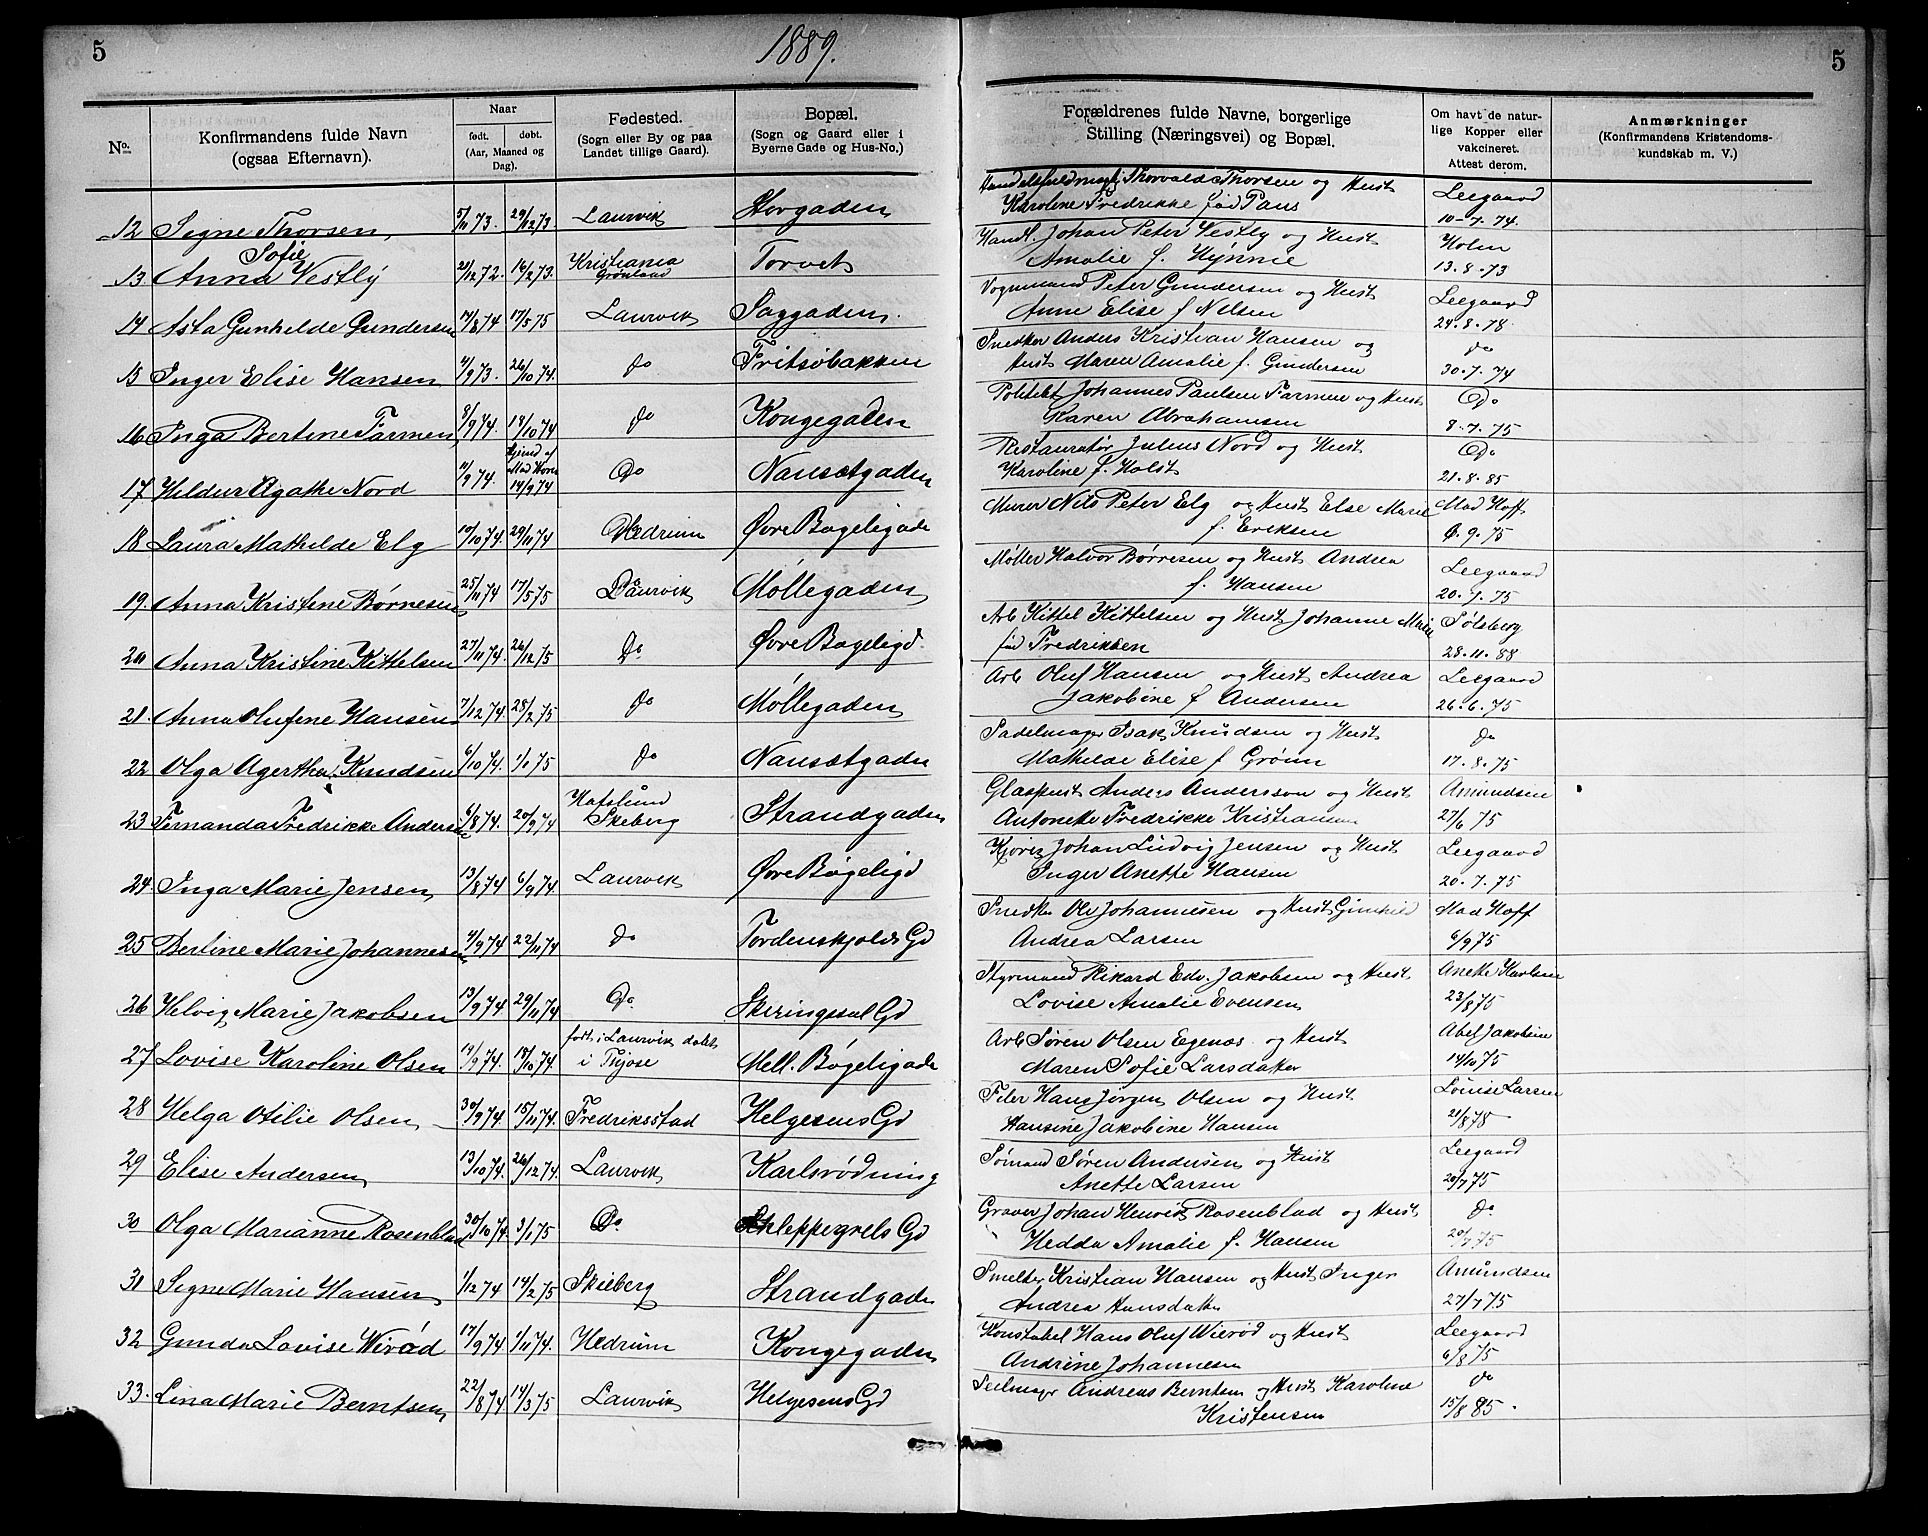 5
1889.
5
No.
Konfirmandens fulde Navn
(ogsaa Efternavn).
Naar
født.
døbt.
(Aar, Maaned og
Dag).
Fødested.
(Sogn eller By og paa
Landet tillige Gaard).
Bopæl.
(Sogn og Gaard eller i
Byerne Gade og Hus-No.)
Forældrenes fulde Navne, borgerlige
Stilling (Næringsvei) og Bopæl.
Om havt de natur-
lige Kopper eller
vakcineret.
Attest derom.
Anmærkninger
(Konfirmandens Kristendoms-
kundskab m. V.)
12 Signe Thorsen 5/11 73. 29/12 73. Laurvik Storgaden
Handelsfuldmægtig Thorvald Thorsen og Hust
Karoline Fredrikke fød Paus
Leegaard
10-7.74.
Sofie
13. Anna Vestly 21/12 72. 16/2 73. Kristiania Torvet
Grønland
Handl. Johan Peter Vestly og Hust
Amalie f. Hynne
Holm
13.8.73
14 Asta Gunhilde Gundersen 14/8 74 17/5 75 Laurvik Saggaden.
Vognmand Peter Gundersen og Hust
Anne Elise f Nilsen
Leegaard
24.8.78.
15 Inger Elise Hansen 4/9 73. 26/10 74. do Fritsøbakken
Snedker Anders Kristian Hansen og
Hust Maren Amalie f. Gundersen
do
30.7.74
16 Inga Bertine Farmen 8/9 74. 14/10 74 do Kongegaden
Politibt Johannes Paulsen Farmen og Hust
Karen Abrahamsen
Do
8.7.75
17 Hildur Agathe Nord 11/9 74. 14/9 74 Do Nansetgaden
Restauratør Julius Nord og Hust
Karoline f. Holst
Do
21.8.85
18 Laura Mathilde Elg 10/10 74. 29/11 74 Hedrum Øvre Bøgeligade
Murer Nils Peter Elg og Hust Else Marie
f. Eriksen
Mad Hoff
6.9.75
19. Anna Kristine Børresen 25/11 74 17/5 75 Laurvik Møllegaden
Møller Halvor Børresen og Hust Andrea
f. Hansen
Leegaard
20.7.75
20 Anna Kristine Kittelsen 27/11 74. 26/12 75 Do Øvre Bøgeligd.
Arb Kittel Kittelsen og Hust Johanne Marie
fød Fredriksen
Sølsberg
28.11.88
21. Anna Olufine Hansen 7/12 74. 28/2 75 do Møllegaden
Arb Oluf Hansen og Hust Andrea
Jakobine f Andersen
Leegaard
26.6.75
22 Olga Agerthea Knudsen 6/10 74. 1/1 75 do Nansetgaden
Sadelmager Isak Knudsen og Hust
Mathilde Elise f Grønn
do
17.8.75
23 Fernanda Fredrikke Andersen 6/8 74. 20/9 74 Hafslund Strandgaden
Skeberg
Glaspust Anders Andersson og Hust
Antonette Fredrikke Kristiansen
Amundsen
27/6 75
24. Inga Marie Jensen 13/8 74 6/9 74. Laurvik Øvre Bøgeligd
Kjøren Johan Ludvig Jensen og Hust
Inger Anette Hansen
Leegaard
20.7.75
25 Bertine Marie Johannesen 4/9 74 22/11 74 do Tordenskjolds Gd
Snedker Ole Johannesen og Hust Gunhild
Andrea Larsen
Mad Hoff
6/9 75
26 Helvig Marie Jakobsen 13/9 74. 29/11 74 Do. Skiringssal Gd
Styrmand Rikard Edv. Jakobsen og Hust
Lovise Amalie Evensen
Anette Karlsen
23/8 75
27 Lovise Karoline Olsen 14/9 74. 18/10 74. født i Laurvik døbt Mell. Bøgeligade
i Tjose
Arb Søren Olsen Egenæs og Hust
Maren Sofie Larsdatter
Abel Jakobsen
14/10 75
28 Helga Otilie Olsen 30/9 74. 15/11 74. Fredriksstad Helgesens Gd
Filer Hans Jörgen Olsen og Hust
Hansine Jakobine Hansen
Louise Larsen
21/8 78
29 Elise Andersen 13/10 74. 26/12 74. Laurvik Karlsrødning
Sømand Søren Andersen og Hust
Anette Larsen
Leegaard
20/7 75
30 Olga Marianne Rosenblad 30/10 74. 3/1 75 Do. Schleppegrels Gd
Graver Johan Henrik Rosenblad og Hust
Hedda Amalie f. Hansen
do
20/7 75
31 Signe Marie Hansen 1/12 74 14/2 75 Skieberg Strandgaden
Smelter Kristian Hansen og Hust Inger
Andrea Hansdatter
Amundsen
27/7 75
32 Gunda Lovise Wirød 17/9 74. 1/11 74. Hedrum Kongegaden
Konstabel Hans Oluf Wierød og Hust
Andrine Johannesen
Leegaard
6/8 75
33. Lina Marie Berntsen 22/8 74 14/3 75 Laurvik Helgesens Gd
Seilmager Andreas Berntsen og Hust Karoline
Kristensen
do
15/8 85.